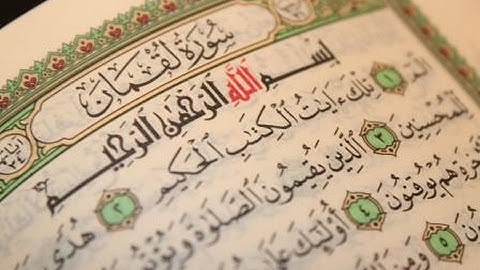 سُورَةُ لُقْمَانَ
بِسْمِ اللَّهِ الرَّحْمَٰنِ الرَّحِيمِ
الٓمٓ ١ تِلْكَ ءَايَٰتُ الْكِتَٰبِ الْحَكِيمِ ٢ هُدًى
لِّلْمُحْسِنِينَ ٣ الَّذِينَ يُقِيمُونَ الصَّلَوٰةَ وَيُؤْتُونَ
هُمْ يُوقِنُونَ ٤ أُولَٰئِكَ عَلَىٰ
٥ وَمِنَ